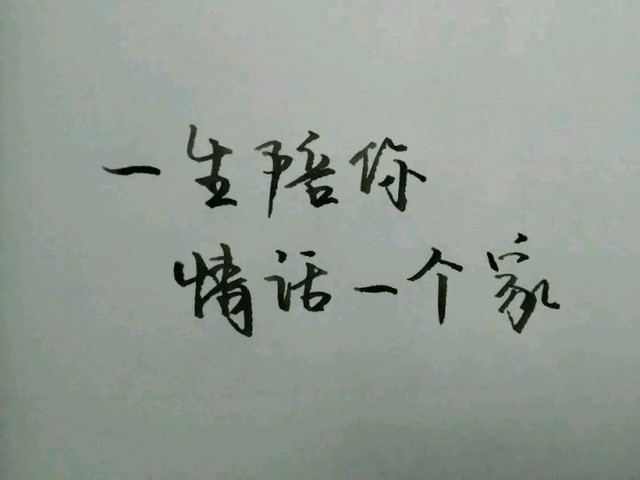 一生陪你
情话一个家